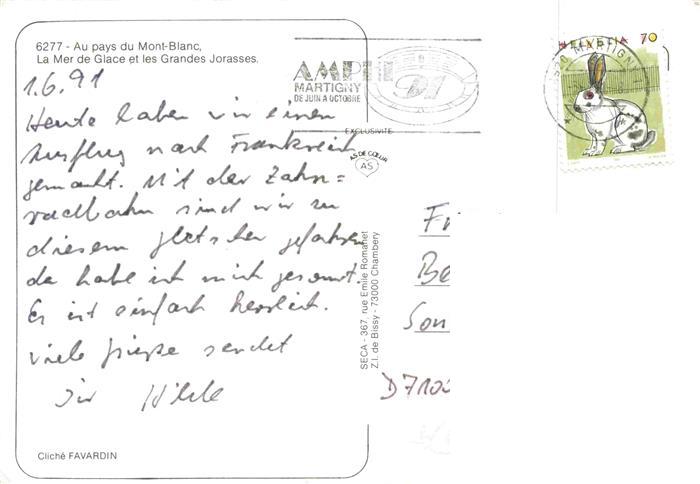 6277 - Au pays du Mont-Blanc,
La Mer de Glace et les Grandes Jorasses.
1.6.91
Heute haben wir einen
Ausflug nach Frankreich
gemacht. Mit der Zahn=
radbahn sind wir zu
diesem Gletscher gefahren
da habe ich mich gesonnt.
Es ist einfach herrlich.
Viele Grüße sendet
Cliché FAVARDIN
AMPHI
91
MARTIGNY
DE JUIN A OCTOBRE
EXCLUSIVITÉ
AS DE CŒUR
AS
SECA - 367, rue Emile Romanet
Z.I. de Bissy - 73000 Chambery
HELVETIA 70
MARTIGNY
Be
Son
D7100